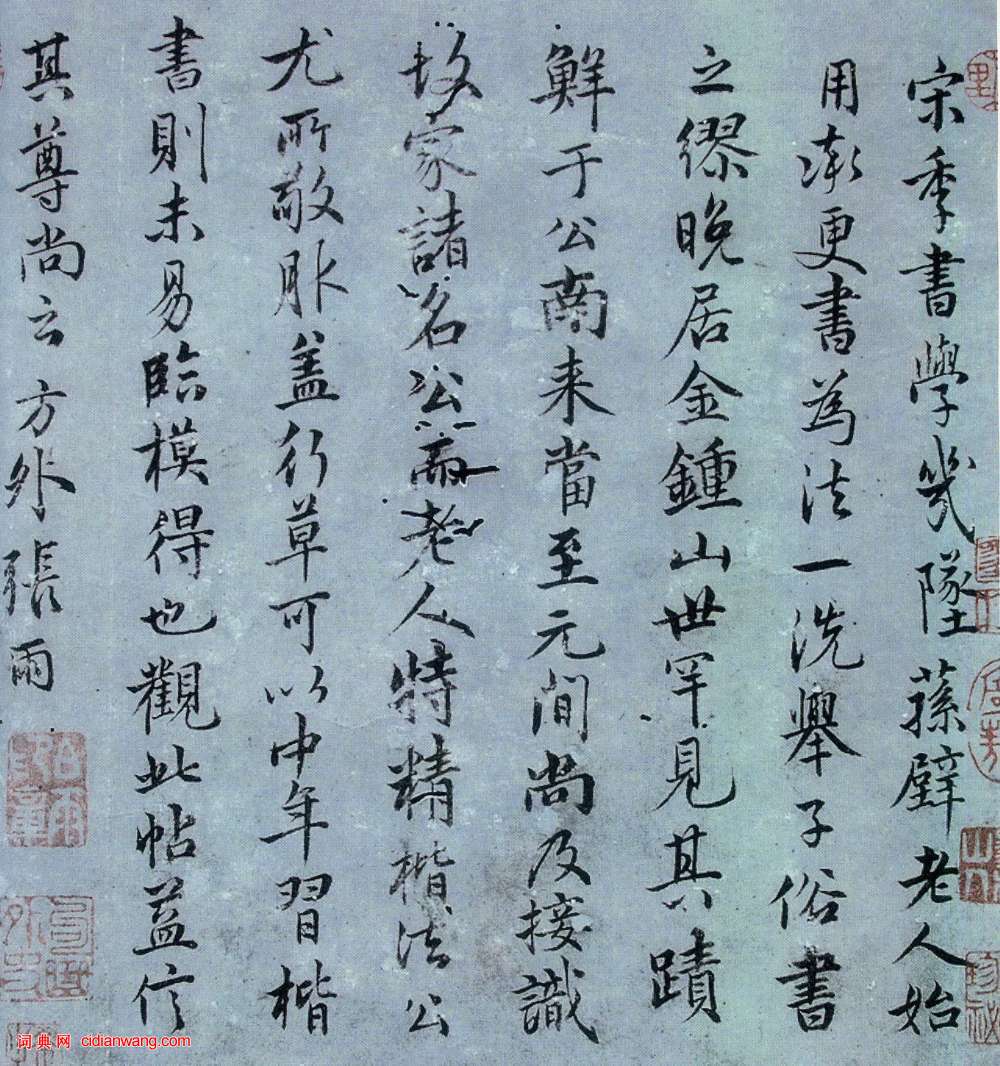 宋季書學幾墜蓀壁老人始
用漸更書為法一洗舉子俗書
之繆晚居金鍾山世罕見其蹟
鮮于公南来當至元間尚及接識
故家諸名公而老人特精楷法公
尤所敬服盖行草可以中年習楷
書則未易臨模得也觀此帖益信
其尊尚云 方外張雨
词典网 cidianwang.com